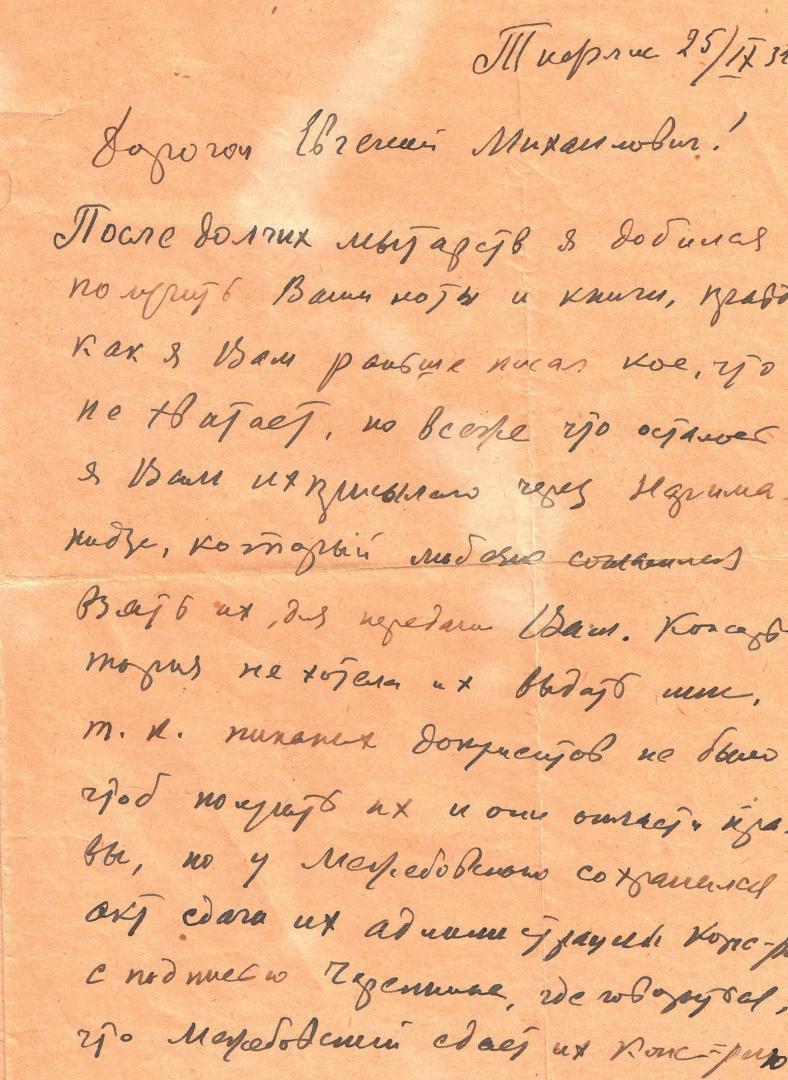 Тифлис 25/IX 31
Дорогой Евгений Михайлович!
После долгих мытарств я добился
получить Ваши ноты и книги, правд
как я Вам раньше писал кое, что
не хватает, но всеже что осталось
я Вам их присылаю через Нарима-
нидзе, который любезно согласился
взять их, для передачи Вам. Консерв
тория не хотела их выдать мне,
т. к. никаких документов не было
чтоб получить их и они отчасти пра-
вы, но у Межебовского сохранился
акт сдачи их администрации Конс-р
с подписью Черепнина, где говорится,
что Межебовский сдает их Конс-рию